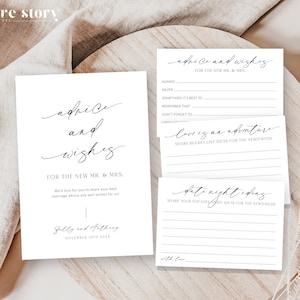 re story
advice
and
wishes
FOR THE NEW MR. & MRS.
We'd love for you to share your best
marriage advice and well wishes for us!
Sally and Anthony
advice and wishes
FOR THE NEW MR. & MRS.
ALWAYS
NEVER
SOMETIMES IT'S BEST TO
REMEMBER THAT
DON'T FORGET TO
love is an adventure
SHARE BUCKET LIST IDEAS FOR THE NEWLYWEDS
date night ideas
SHARE YOUR TOP DATE NIGHT IDEAS FOR THE NEWLYWEDS